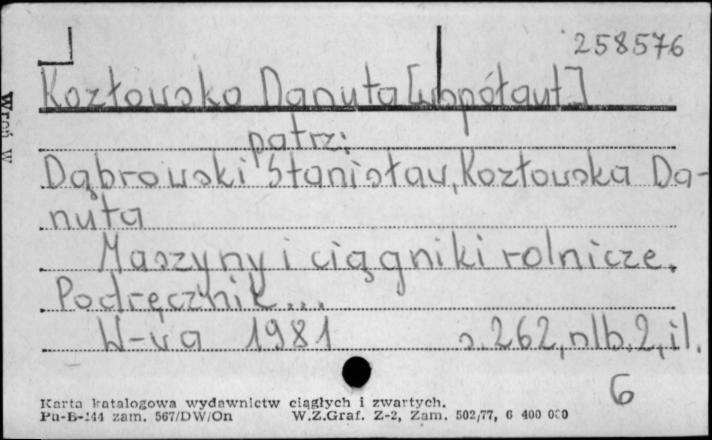 258576
Kozłowska Danuta [współaut]
patrz:
Dąbrowski Stanisław, Kozłowska Da-
nuta
Maszyny i ciągniki rolnicze.
Podręcznik...
W-wa 1981 s. 262, nlb. 2, il.
6
Karta katalogowa wydawnictw ciągłych i zwartych.
Pu-B-244 zam. 567/DW/On W.Z.Graf. Z-2, Zam. 502/77, 6 400 000